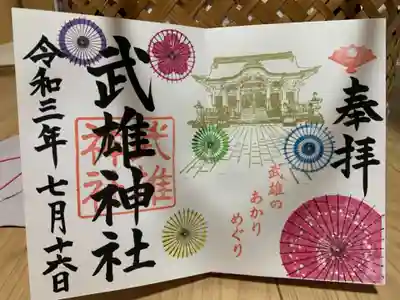 奉拝
武雄の
あかり
めぐり
武雄神社
武雄
神社
令和三年 七月十六日